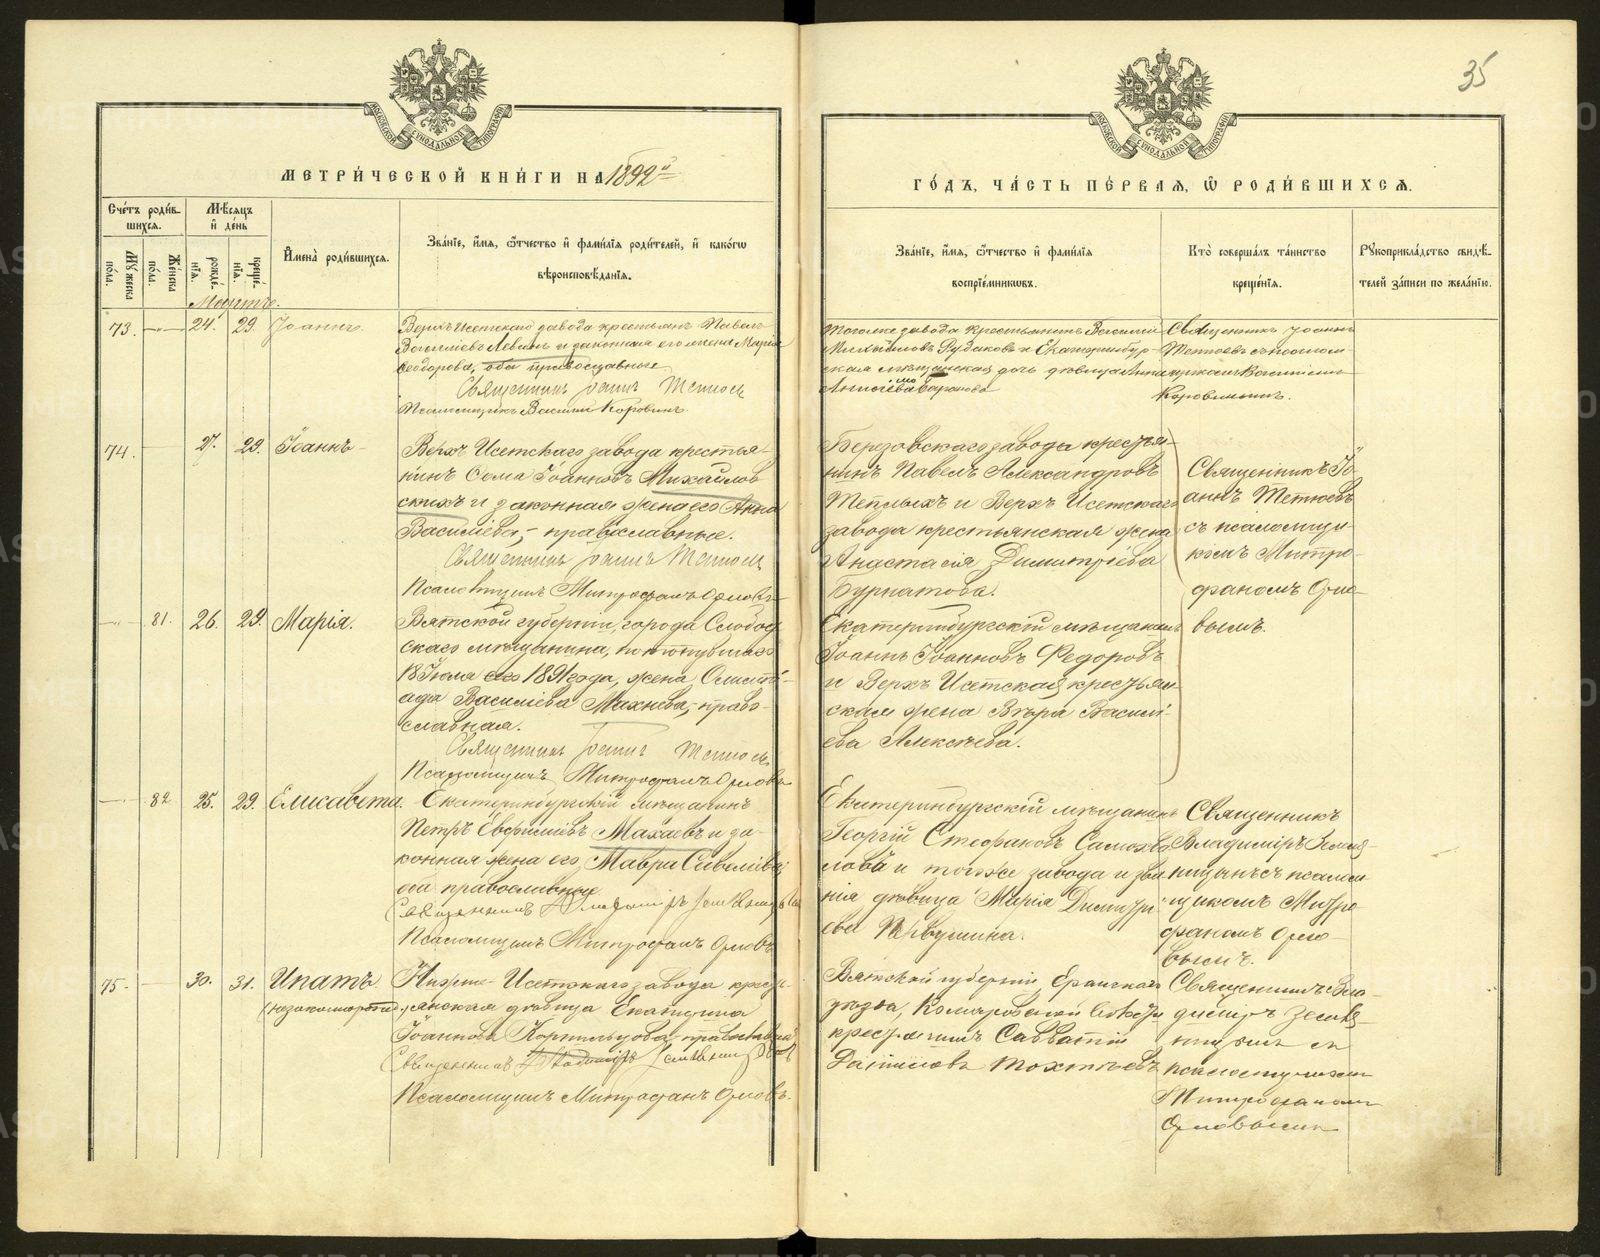 35
МЕТРИ́ЧЕСКОЙ КНИ́ГИ НА 1892й
ГО́ДЪ, ЧА́СТЬ ПЕ́РВАЯ, Ѽ РОДИ́ВШИХСЯ.
Сче́тъ роди́в-
шихся.
Му́жеска по́ла.
Же́нска по́ла.
Мѣсяцъ и де́нь
рожде́нїя.
креще́нїя.
И҆мена̀ роди́вшихся.
Зва́нїе, и҆́мя, ѻ҆́тчество и҆ фами́лїя роди́телей, и҆ како́гѡ
вѣроисповѣ́данїя.
Зва́нїе, и҆́мя, ѻ҆́тчество и҆ фами́лїя
воспрїе́мникѡвъ.
Кто̀ соверша́лъ та́инство
креще́нїя.
Рꙋкоприкла́дство свидѣ́-
телей за́писи по жела́нїю.
Мартъ.
73. 24. 29. Іоаннъ.
Верхъ Исетскаго завода крестьян. Павелъ
Васильевъ Левинъ и законная его жена Марія
Феодорова, оба православные
Священникъ Іоаннъ Тетюевъ
Псаломщикъ Василій Коровинъ.
Тогоже завода крестьянинъ Василій
Михайловъ Рудаковъ и Екатеринбур-
ская мѣщанская дочь дѣвица Анна
Баранова
Священникъ Іоаннъ
Тетюевъ съ псалом-
щикомъ Василіемъ
Коровинымъ.
74. 27. 29. Іоаннъ
Верхъ Исетскаго завода крестья-
нинъ Сома Іоанновъ Михайлов
скихъ и законная жена его Анна
Васильева, православные.
Священникъ Іоаннъ Тетюевъ
Псаломщикъ Митрофанъ Орловъ
Березовскаго завода крестья-
нинъ Павелъ Александровъ
Теплыхъ и Верхъ Исетскаго
завода крестьянская жена
Анастасія Димитріева
Бурнатова.
Священникъ Іо-
аннъ Тетюевъ
съ псаломщи-
комъ Митро-
фаномъ Орло-
вымъ.
81. 26. 29. Марія.
Вятской губерніи, города Слобод
скаго мѣщанина,
18 Іюля сего 1891 года, жена
Васильева Махнева, право-
славная.
Священникъ Іоаннъ Тетюевъ
Псаломщикъ Митрофанъ Орловъ
Екатеринбургскій мѣщанинъ
Іоаннъ Іоанновъ Федоровъ
и Верхъ Исетская крестьян-
ская жена Вѣра Василі-
ева Алексѣева.
82 25. 29. Елисавета.
Екатеринбургскій мѣщанинъ
Петръ Евфиміевъ Махаевъ и за-
конная жена его Мавра Савельева,
оба православные
Священникъ Владиміръ Земляницынъ
Псаломщикъ Митрофанъ Орловъ
Екатеринбургскій мѣщанинъ
Георгій Стефановъ
и тогоже завода и зва
нія дѣвица Марія Димитрі-
ева Первушина.
Священникъ
Владиміръ Земля-
ницынъ съ псалом
щикомъ Митро-
фаномъ Орло-
вымъ.
75. 30. 31. Ипатъ
(незаконнорожд.)
Нижне-Исетскаго завода кресть-
янская дѣвица Екатерина
Іоаннова Кормильцова православная
Священникъ Владиміръ Земляницынъ
Псаломщикъ Митрофанъ Орловъ.
Вятской губерніи, Яранскаго
уѣзда, Комаровской волости
крестьянинъ Савватій
Даніиловъ Тохтѣевъ
Священникъ Вла-
диміръ Земля-
ницынъ съ
псаломщикомъ
Митрофаномъ
Орловымъ